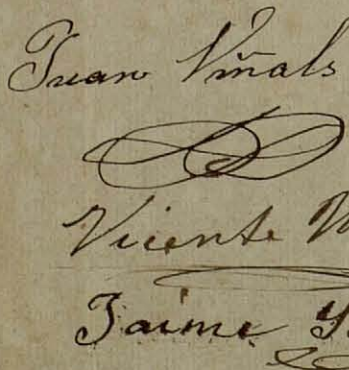 Juan Viñals
Vicente
Jaime